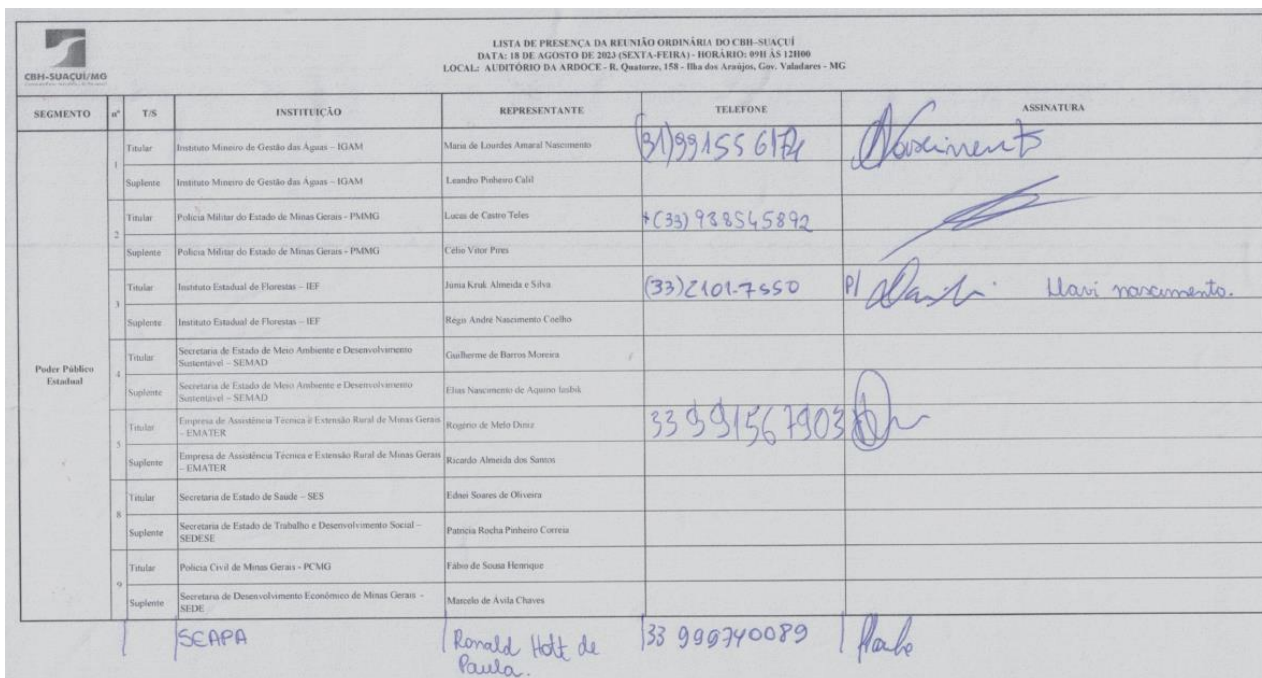 CBH-SUAÇUÍ/MG
LISTA DE PRESENÇA DA REUNIÃO ORDINÁRIA DO CBH-SUAÇUÍ
DATA: 18 DE AGOSTO DE 2023 (SEXTA-FEIRA) - HORÁRIO: 09H ÀS 12H00
LOCAL: AUDITÓRIO DA ARDOCE - R. Quatorze, 158 - Ilha dos Araújos, Gov. Valadares - MG
SEGMENTO nº T/S INSTITUIÇÃO REPRESENTANTE TELEFONE ASSINATURA
Poder Público
Estadual
1
Titular Instituto Mineiro de Gestão das Águas – IGAM Maria de Lourdes Amaral Nascimento (31)99155 6174 Nascimento
Suplente Instituto Mineiro de Gestão das Águas – IGAM Leandro Pinheiro Calil
2
Titular Polícia Militar do Estado de Minas Gerais - PMMG Lucas de Castro Teles (33) 938545892
Suplente Polícia Militar do Estado de Minas Gerais - PMMG Célio Vitor Pires
3
Titular Instituto Estadual de Florestas – IEF Júnia Kruk Almeida e Silva (33)2101-7550 P/ Davi nascimento.
Suplente Instituto Estadual de Florestas – IEF Régis André Nascimento Coelho
4
Titular Secretaria de Estado de Meio Ambiente e Desenvolvimento
Sustentável – SEMAD Guilherme de Barros Moreira
Suplente Secretaria de Estado de Meio Ambiente e Desenvolvimento
Sustentável – SEMAD Elias Nascimento de Aquino
5
Titular Empresa de Assistência Técnica e Extensão Rural de Minas Gerais
– EMATER Rogério de Melo Diniz 33 991567903
Suplente Empresa de Assistência Técnica e Extensão Rural de Minas Gerais
– EMATER Ricardo Almeida dos Santos
8
Titular Secretaria de Estado de Saúde – SES Ednei Soares de Oliveira
Suplente Secretaria de Estado de Trabalho e Desenvolvimento Social –
SEDESE Patrícia Rocha Pinheiro Correia
9
Titular Polícia Civil de Minas Gerais - PCMG Fábio de Sousa Henrique
Suplente Secretaria de Desenvolvimento Econômico de Minas Gerais –
SEDE Marcelo de Ávila Chaves
SEAPA Ronald Hott de 33 999740089
Paula.